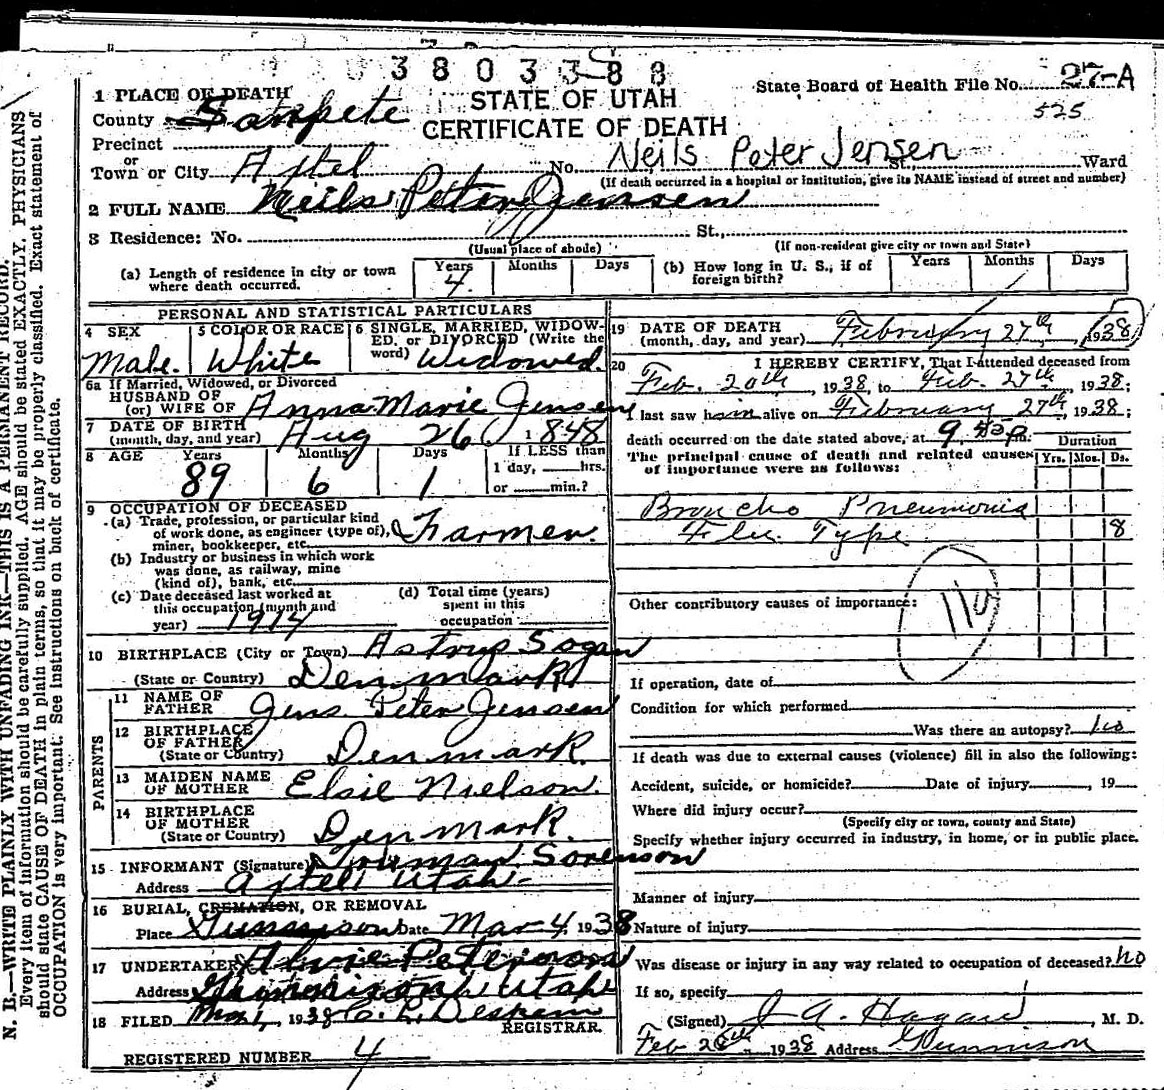 3803388
State Board of Health File No. 27-A
525
1 PLACE OF DEATH
STATE OF UTAH
County Sanpete
CERTIFICATE OF DEATH
Precinct
or
Town or City Axtel No. Neils Peter Jensen Ward
(If death occurred in a hospital or institution, give its NAME instead of street and number)
2 FULL NAME Neils Peter Jensen
3 Residence: No. St.,
(Usual place of abode) (If non-resident give city or town and State)
(a) Length of residence in city or town where death occurred. Years 4 Months Days
(b) How long in U. S., if of foreign birth? Years Months Days
PERSONAL AND STATISTICAL PARTICULARS
4 SEX Male.
5 COLOR OR RACE White
6 SINGLE, MARRIED, WIDOWED, or DIVORCED (Write the word) Widowed.
6a If Married, Widowed, or Divorced
HUSBAND OF
(or) WIFE OF Anna Marie Jensen
7 DATE OF BIRTH
(month, day, and year) Aug 26 1848
8 AGE Years 89 Months 6 Days 1
If LESS than
1 day, hrs.
or min.?
9 OCCUPATION OF DECEASED
(a) Trade, profession, or particular kind
of work done, as engineer (type of), Farmer.
miner, bookkeeper, etc.
(b) Industry or business in which work
was done, as railway, mine
(kind of), bank, etc.
(c) Date deceased last worked at
this occupation (month and
year) 1914
(d) Total time (years)
spent in this
occupation
10 BIRTHPLACE (City or Town) Astrup Sogan
(State or Country) Denmark
PARENTS
11 NAME OF
FATHER Jens Peter Jensen
12 BIRTHPLACE
OF FATHER
(State or Country) Denmark.
13 MAIDEN NAME
OF MOTHER Elsie Nielson.
14 BIRTHPLACE
OF MOTHER
(State or Country) Denmark.
15 INFORMANT (Signature) Norman Sorenson
Address Axtell Utah
16 BURIAL, CREMATION, OR REMOVAL
Place Gunnison Date Mar 4. 1938
17 UNDERTAKER Alvie Peterson
Address Gunnison Utah
18 FILED Mar 1, 1938
REGISTRAR.
REGISTERED NUMBER 4
19 DATE OF DEATH
(month, day, and year) February 27th 1938
20 I HEREBY CERTIFY, That I attended deceased from
Feb. 20th 1938, to Feb. 27th, 1938;
I last saw him alive on February 27th, 1938;
death occurred on the date stated above, at 9:30 p.m.
Duration
The principal cause of death and related causes
of importance were as follows:
Yrs. Mos. Ds.
Broncho Pneumonia
Flu Type 8
Other contributory causes of importance:
If operation, date of
Condition for which performed
Was there an autopsy? no
If death was due to external causes (violence) fill in also the following:
Accident, suicide, or homicide? Date of injury , 19
Where did injury occur?
(Specify city or town, county and State)
Specify whether injury occurred in industry, in home, or in public place.
Manner of injury
Nature of injury
Was disease or injury in any way related to occupation of deceased? no
If so, specify
(Signed) J. A. Hagan, M. D.
Feb 28th, 1938 Address Gunnison
N. B.—WRITE PLAINLY WITH UNFADING INK—THIS IS A PERMANENT RECORD.
Every item of information should be carefully supplied. AGE should be stated EXACTLY. PHYSICIANS
should state CAUSE OF DEATH in plain terms, so that it may be properly classified. Exact statement of
OCCUPATION is very important. See instructions on back of certificate.